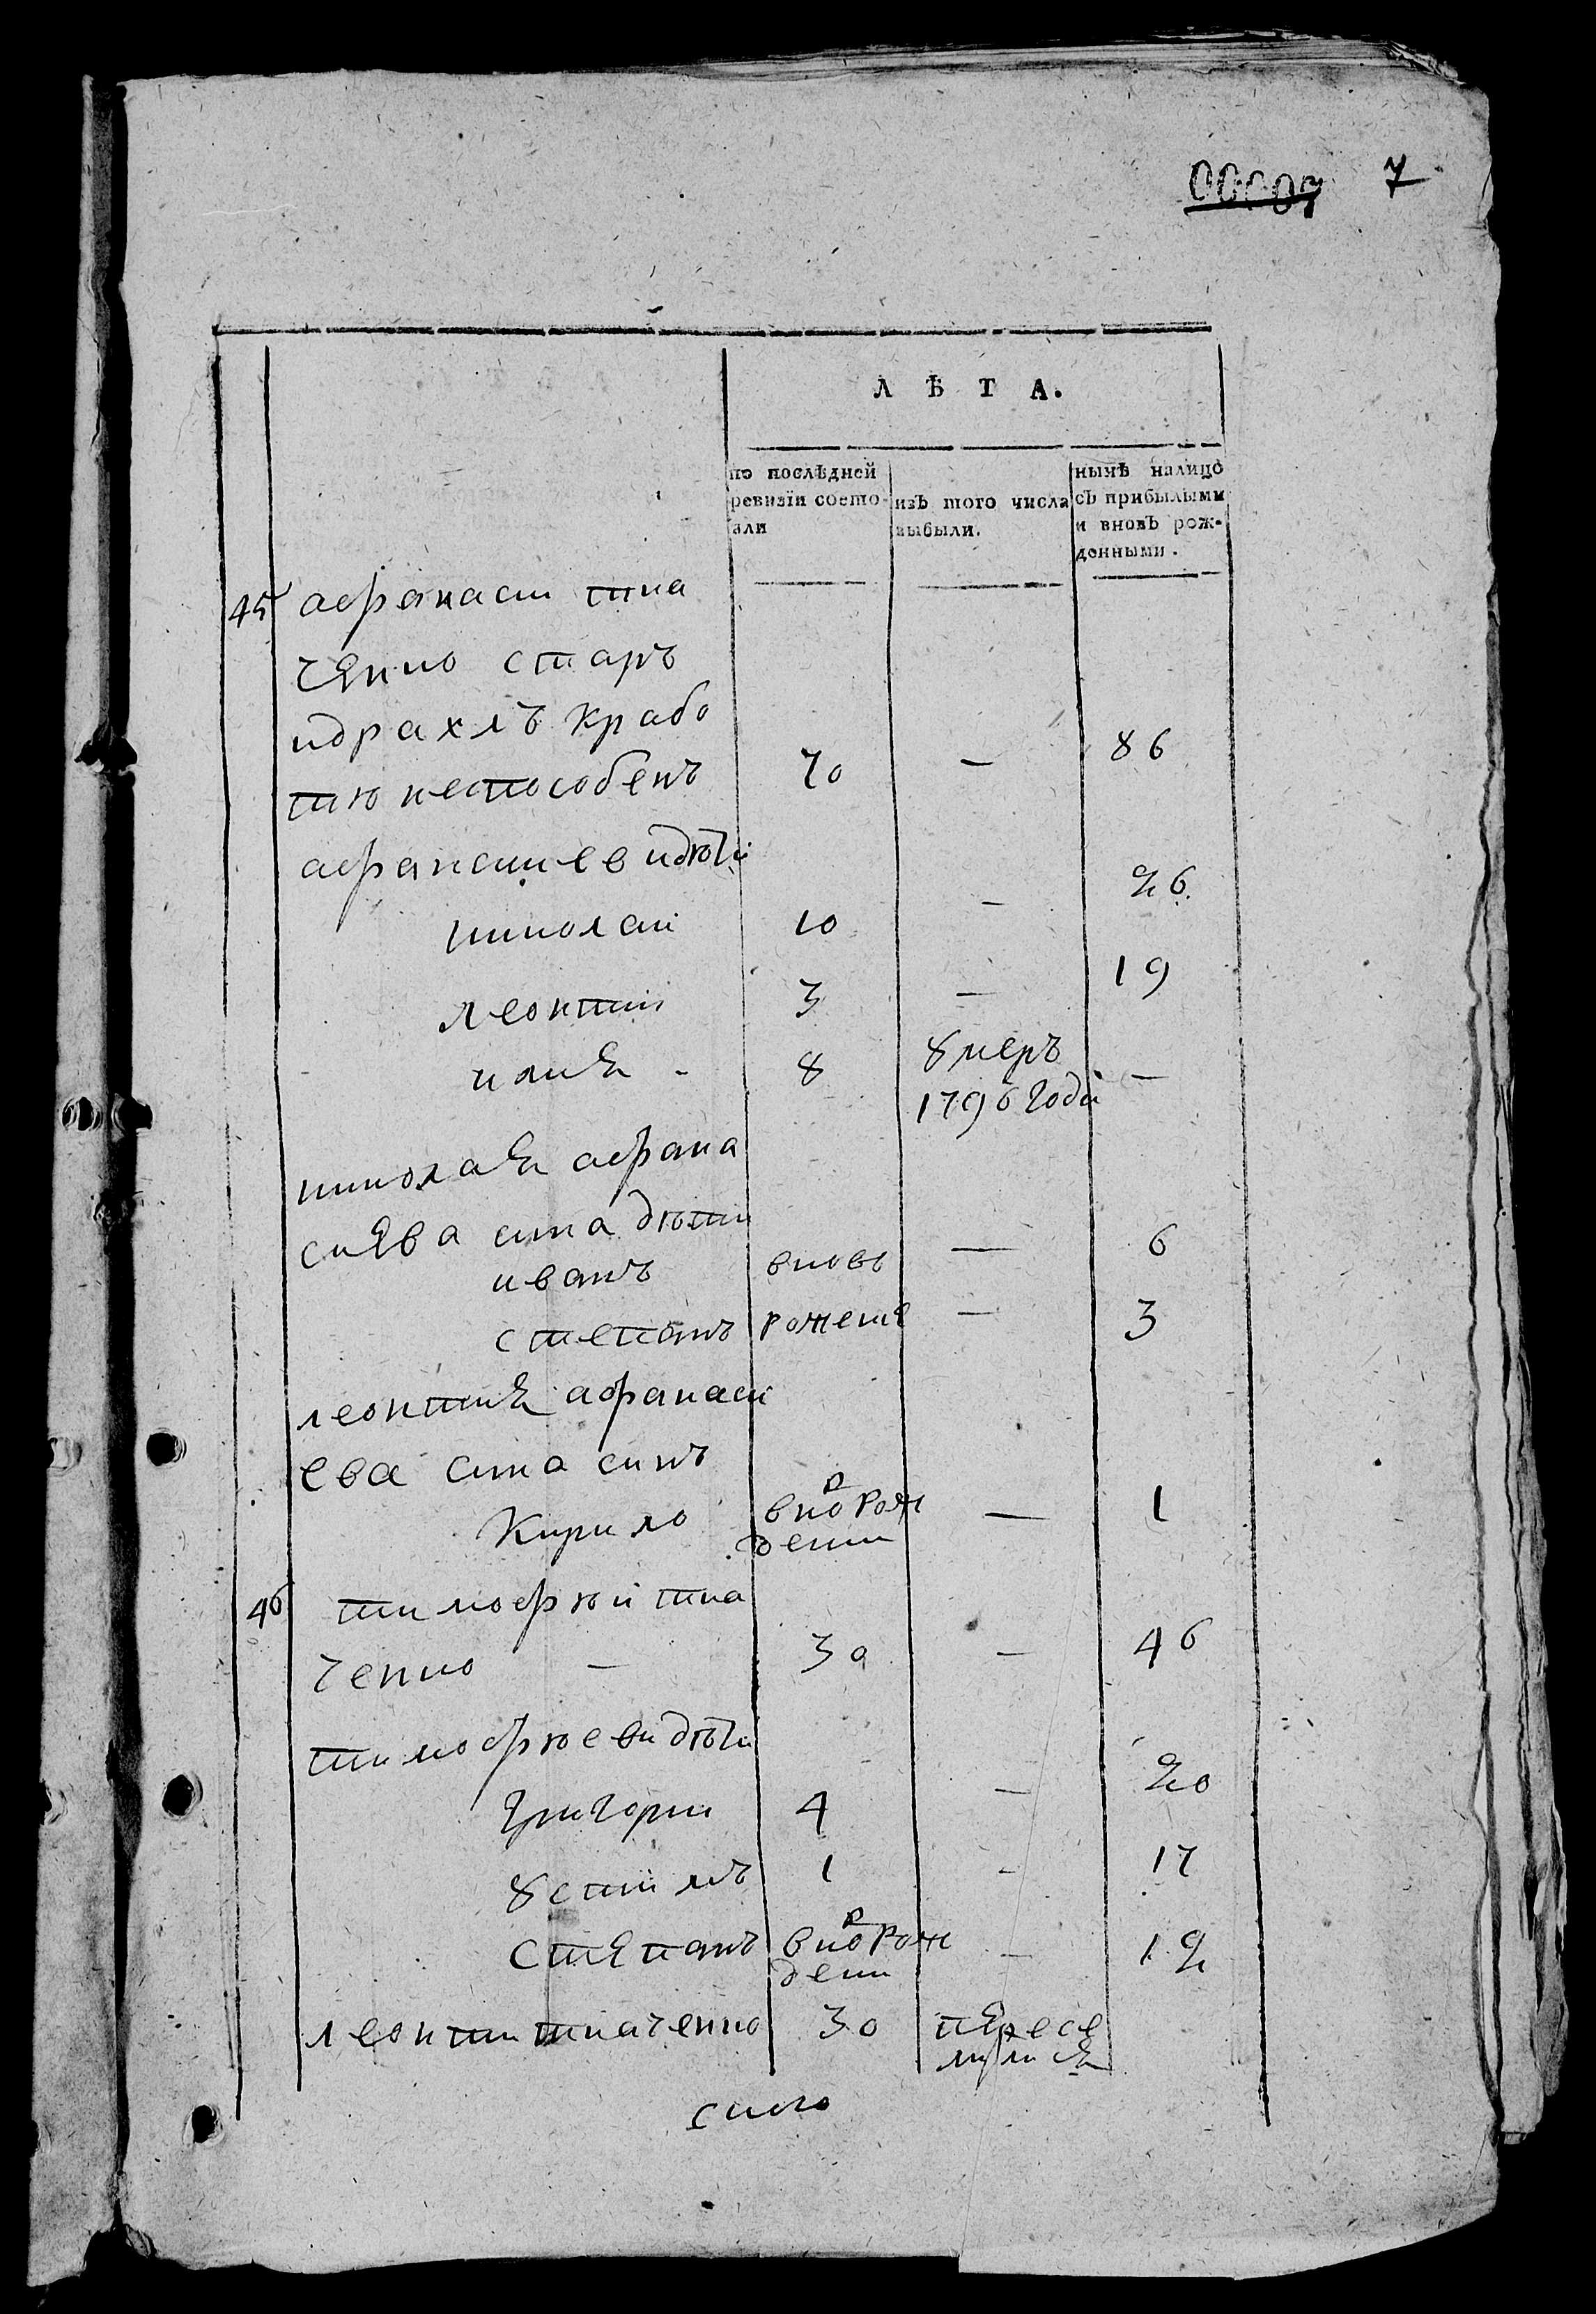 00007 7
ЛѢТА.
по послѣдней ревизіи состояли
изъ того числа выбыли.
нынѣ налицо съ прибылыми и вновь рожденными.
45 афанаси тка
ченко старъ
идрахлъ крабо
тѣ неспособенъ 70 — 86
афанасиеви дѣти
николаи 10 — 26
леонтии 3 — 19
илия - 8 ꙋмеръ 1796 году —
николая афана
сиева сина дѣти
иванъ вновь — 6
степанъ рожение — 3
леонтия афанаси
ева сина синъ
Кирило вновь рож дени — 1
46 тимофѣй тка
ченко — 30 — 46
тимофѣеви дѣти
григории 4 — 20
ꙋстимъ 1 — 17
степанъ вновь рож дени — 12
леонти ткаченко 30 пересе лился